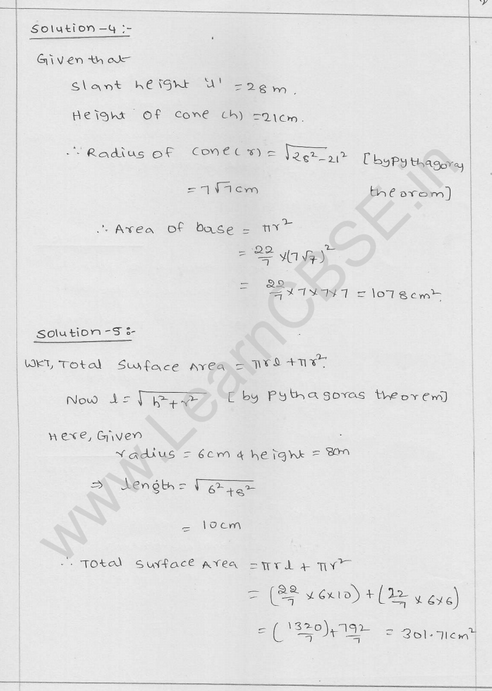 Solution-4:-
Given that
Slant height 'l' = 28m.
Height of cone (h) = 21cm.
∴ Radius of cone(r) = √28²-21² [by Pythagoras
= 7√7cm theorom]
∴ Area of base = πr²
= 22/7 × (7√7)²
= 22/7 × 7 × 7 × 7 = 1078cm².
Solution-5:-
WKT, Total Surface Area = πrl + πr².
Now l = √h²+r² [by Pythagoras theorem]
Here, Given
radius = 6cm & height = 8cm
⇒ length = √6²+8²
= 10cm
∴ Total Surface Area = πrl + πr²
= (22/7 × 6×10) + (22/7 × 6×6)
= (1320/7) + 792/7 = 301.71cm²
www.LearnCBSE.in